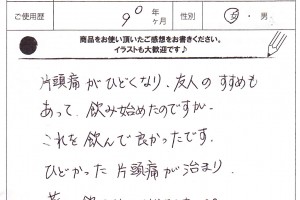 ご使用歴 9 年 ヶ月 性別 女・男
商品をお使い頂いたご感想をお書きください。
イラストも大歓迎です♪
片頭痛がひどくなり、友人のすすめも
あって、飲み始めたのですが、
これを飲んで良かったです。
ひどかった片頭痛が治まり、